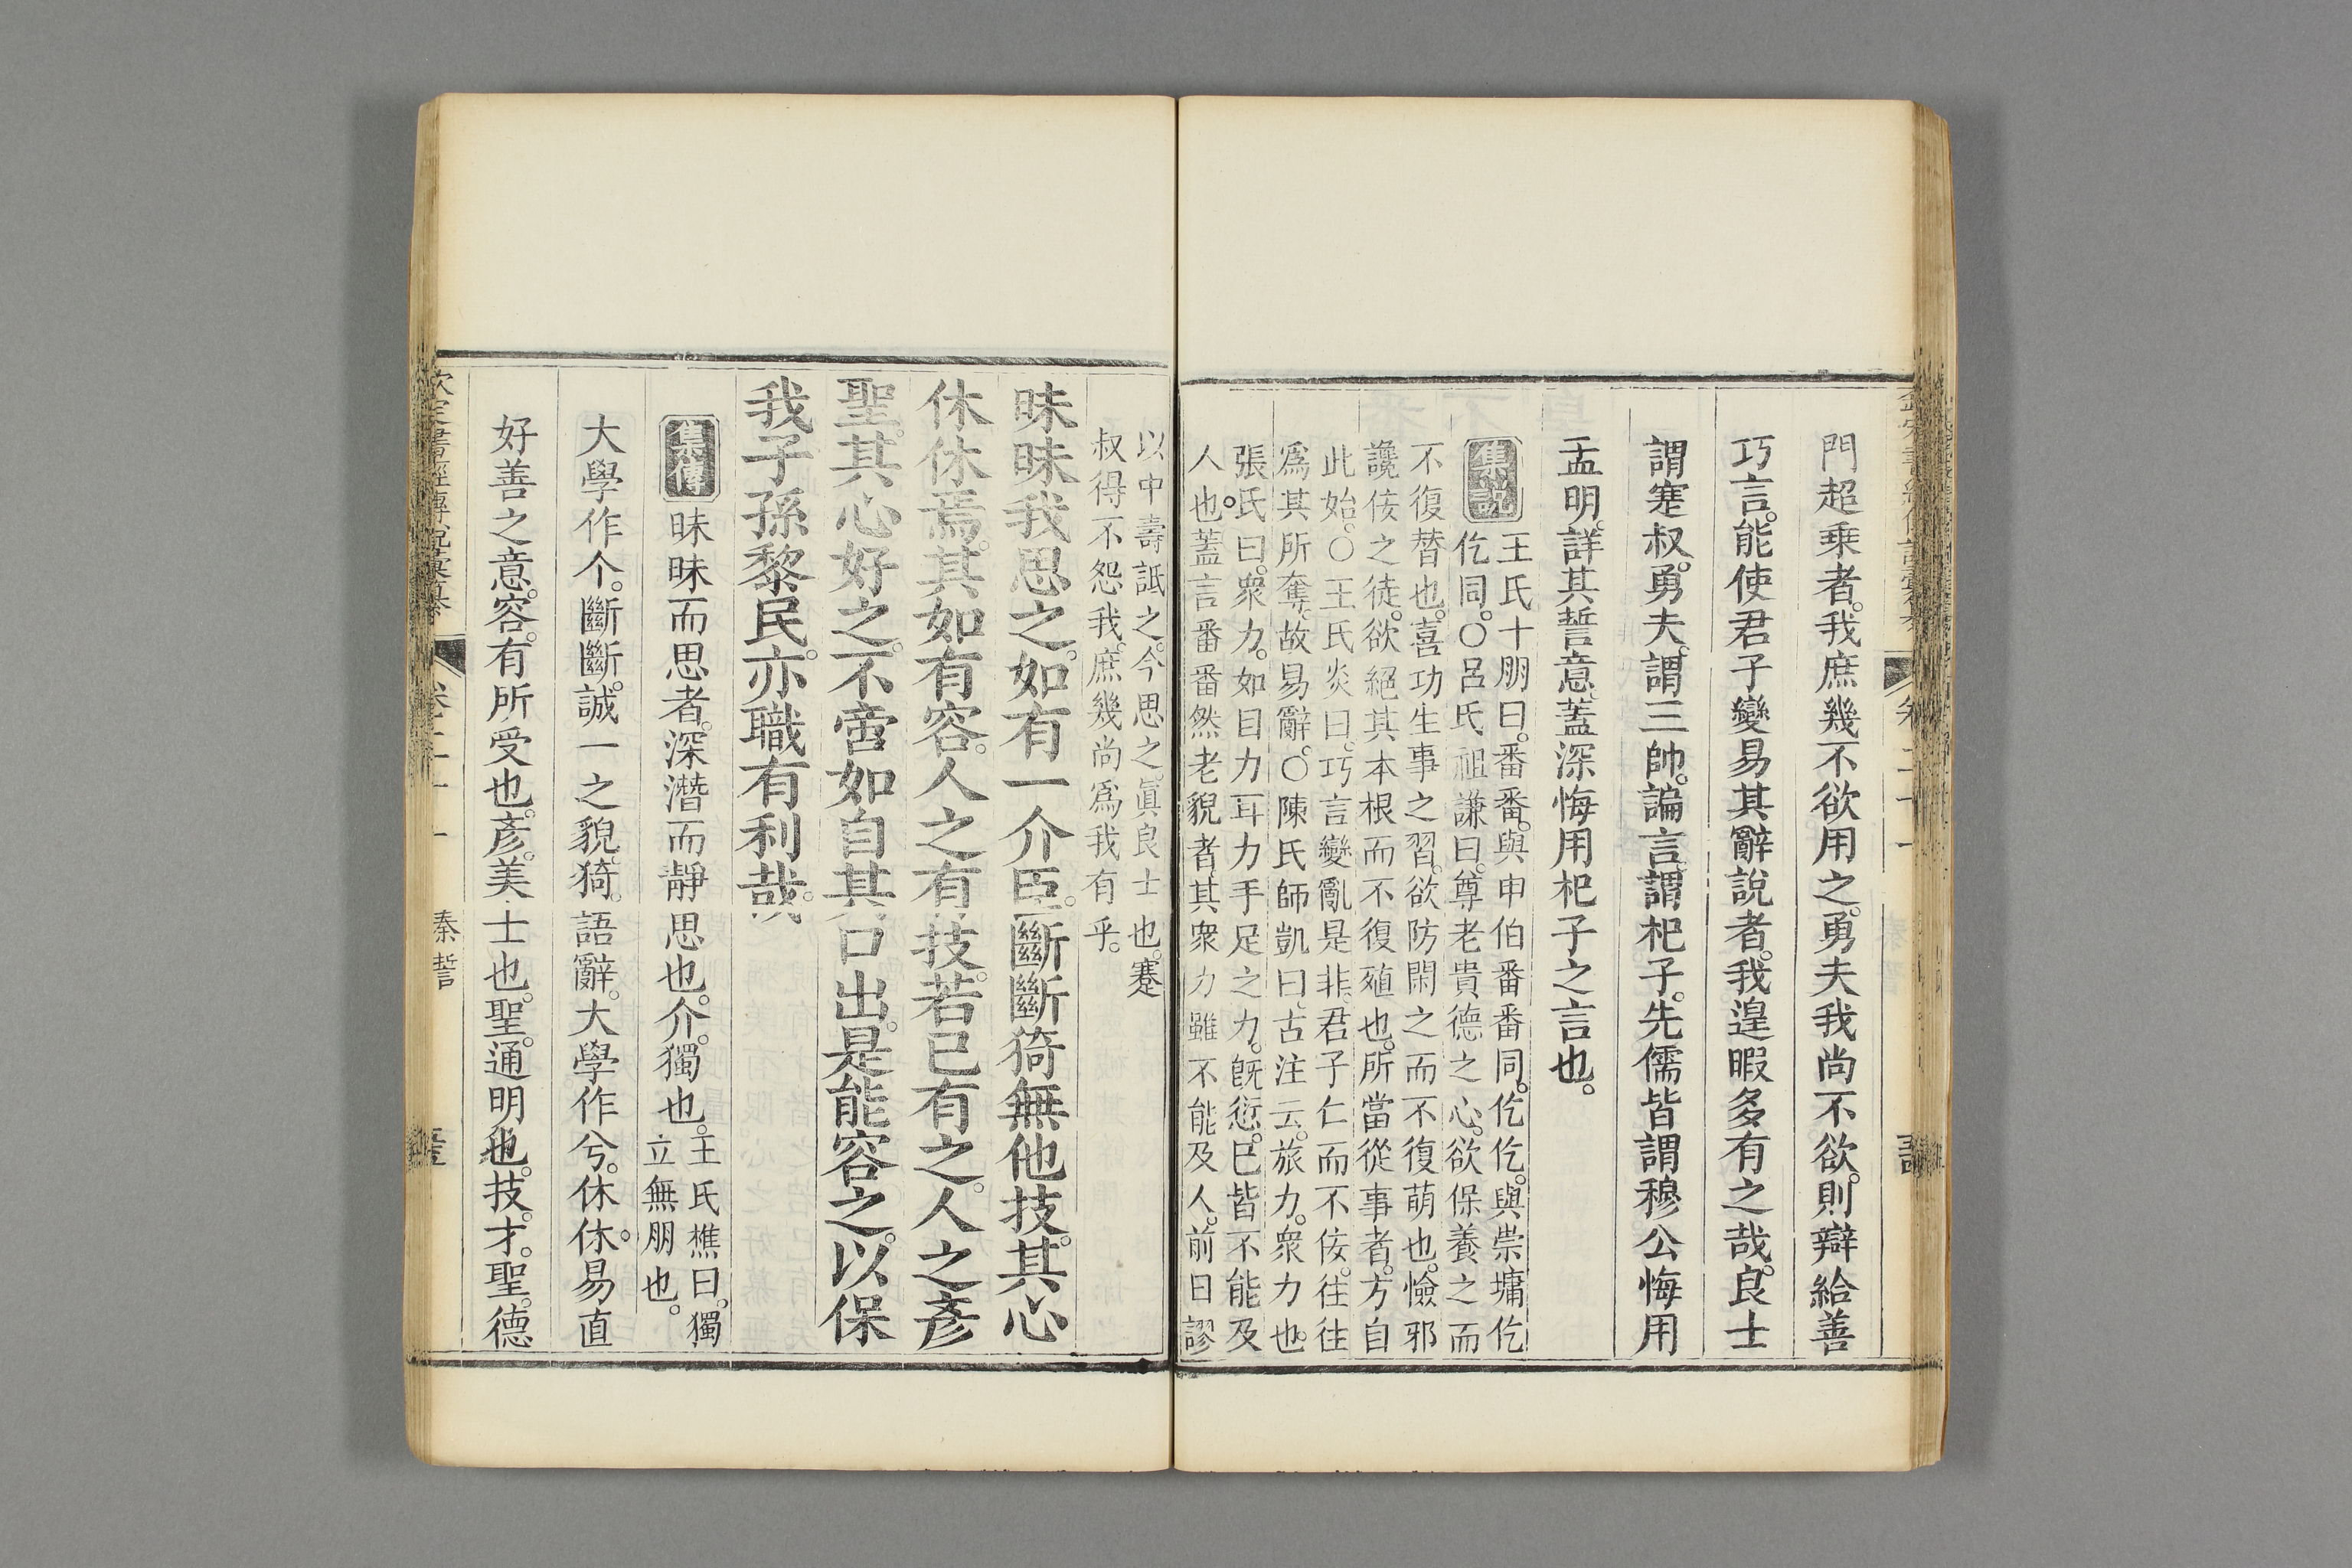 門超乗者。我庶幾不欲用之。勇夫我尚不欲。則辯給善
巧言。能使君子變易其辭說者。我遑暇多有之哉。良士
謂蹇叔。勇夫。謂三帥。諞言。謂杞子。先儒皆謂穆公悔用
孟明。詳其誓意。蓋深悔用杞子之言也。
集說
王氏十朋曰。番番。與申伯番番同。仡仡。與崇墉仡
仡同。○呂氏祖謙曰。尊老貴德之心。欲保養之而
不復替也。喜功生事之習。欲防閑之而不復萌也。憸邪
讒佞之徒。欲絕其本根而不復殖也。所當從事者。方自
此始。○王氏炎曰。巧言變亂是非。君子仁而不佞。往往
爲其所奪。故易辭。○陳氏師凱曰。古注云。旅力。衆力也。
張氏曰。衆力。如目力耳力手足之力。旣愆。已皆不能及
人也。蓋言番番然老貌者。其衆力雖不能及人。前日謬
以中壽詆之。今思之。眞良士也。蹇
叔得不怨我。庶幾尚爲我有乎。
昧昧我思之。如有一介臣。斷斷猗無他技。其心
休休焉。其如有容。人之有技。若已有之。人之彥
聖。其心好之。不啻如自其口出。是能容之。以保
我子孫黎民。亦職有利哉。
集傳
昧昧而思者。深潛而靜思也。介。獨也。
王氏樵曰。獨
立無朋也。
大學作个。斷斷。誠一之貌。猗。語辭。大學作兮。休休。易直
好善之意。容。有所受也。彥。美士也。聖。通明也。技。才。聖。德
欽定書經傳說彙纂
卷二十一
秦誓